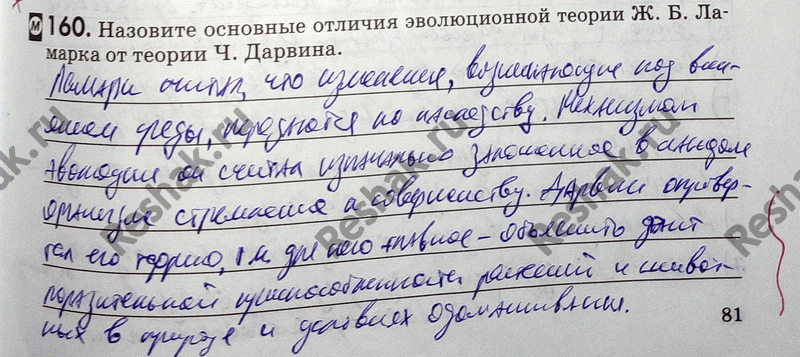 160. Назовите основные отличия эволюционной теории Ж. Б. Ла-
марка от теории Ч. Дарвина.
Ламарк считал, что изменения, возникающие под вли-
янием среды, передаются по наследству. Механизмом
эволюции он считал изначально заложенное в каждом
организме стремление к совершенству. Дарвин опровер-
гал его теорию, т.к. для него главное – объяснить факт
поразительной приспособленности растений и живот-
ных в природе и условиях одомашнивания.
81
Reshak.ru
Reshak.ru
Reshak.ru
Reshak.ru